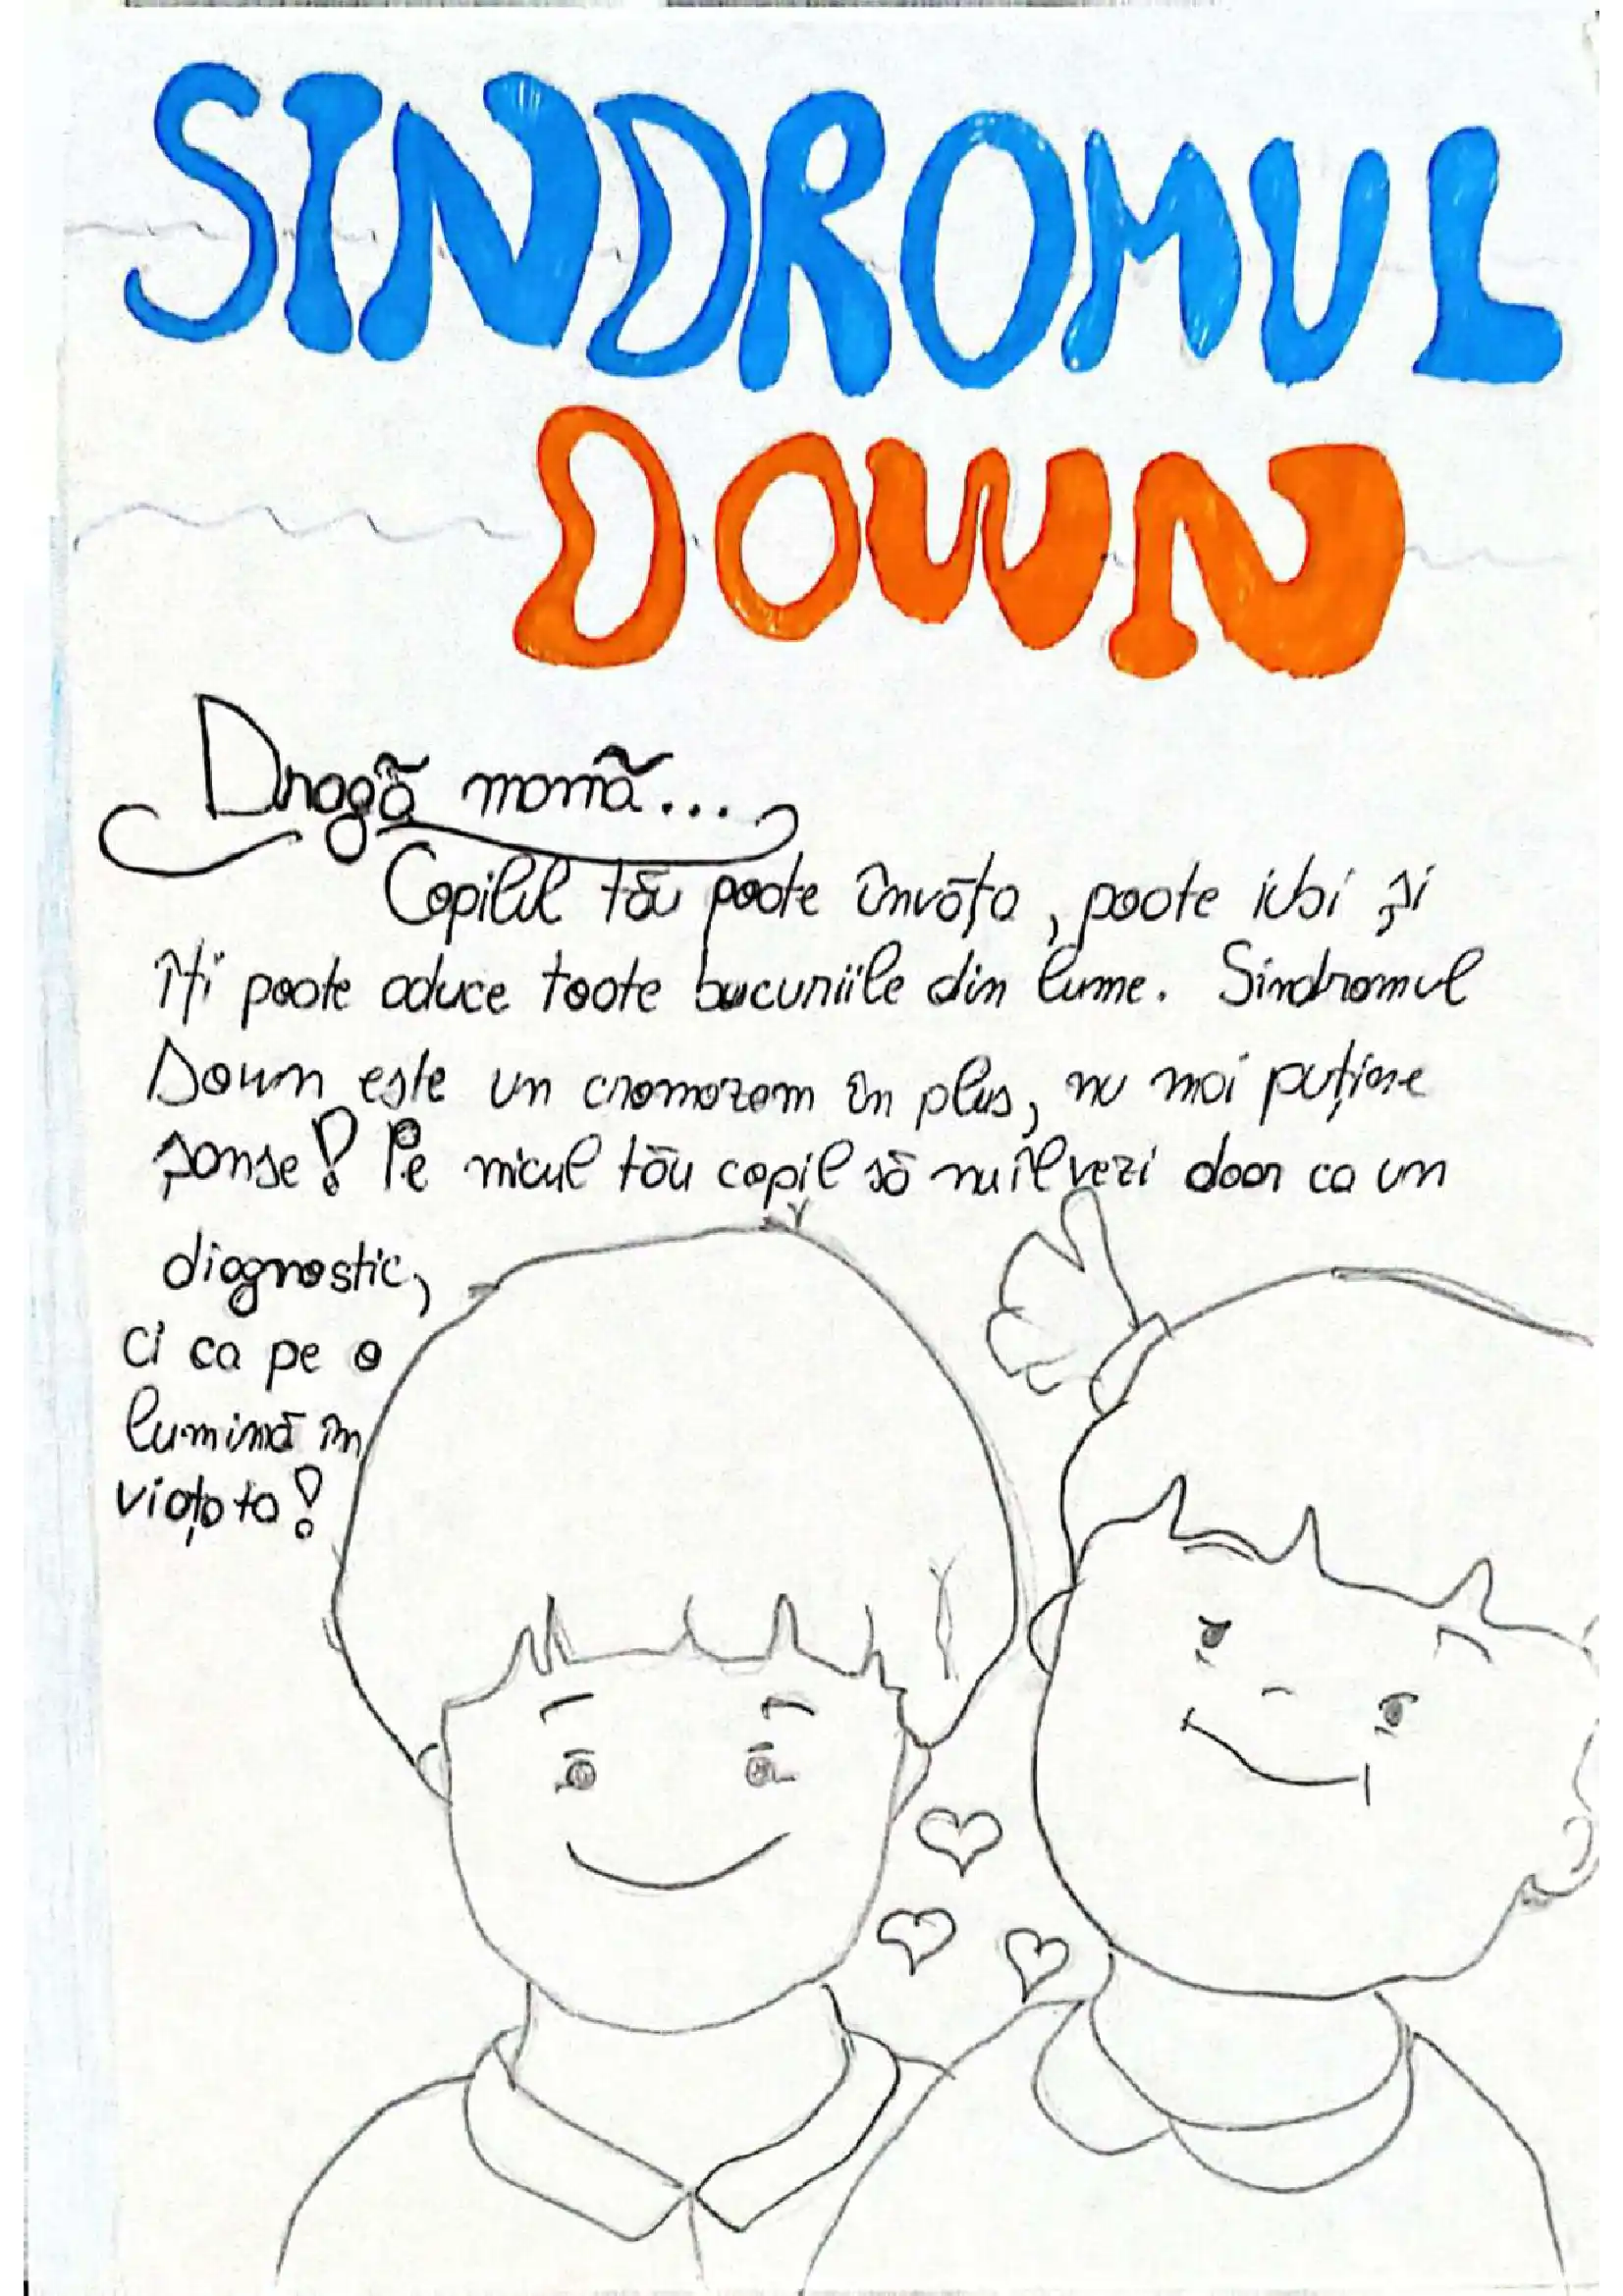 SINDROMUL
DOWN
Dragă mamă...
Copilul tău poate învăța, poate iubi și
îți poate aduce toate bucuriile din lume. Sindromul
Down este un cromozom în plus, nu mai puține
șanse! Pe micul tău copil să nu îl vezi doar ca un
diagnostic,
ci ca pe o
lumină în
viața ta!